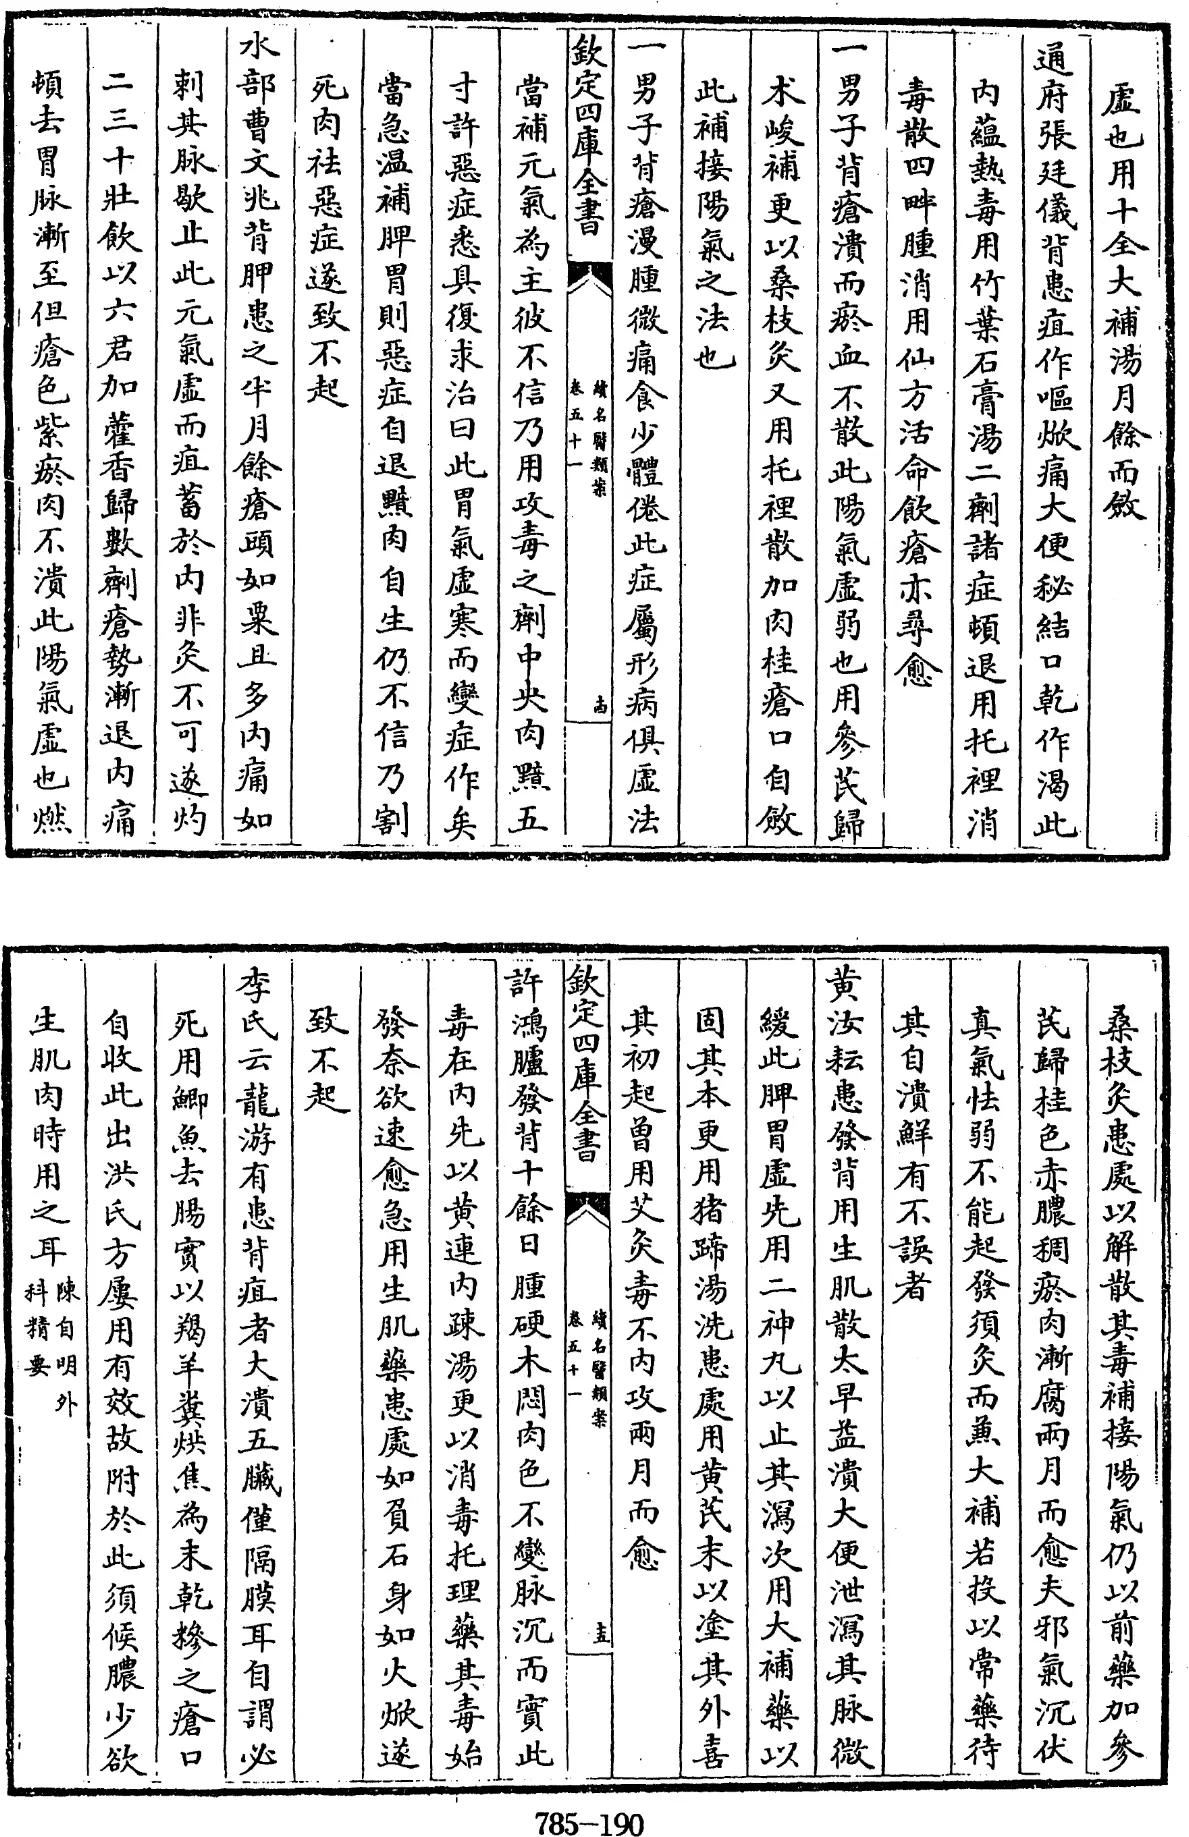 虛也用十全大補湯月餘而斂
通府張廷儀背患疽作嘔㷔痛大便秘結口乾作渴此
内蘊熱毒用竹葉石膏湯二劑諸症頓退用托裡消
毒散四畔腫消用仙方活命飲瘡亦尋愈
一男子背瘡潰而瘀血不散此陽氣虛弱也用參芪歸
术峻補更以桑枝灸又用托裡散加肉桂瘡口自斂
此補接陽氣之法也
一男子背瘡漫腫微痛食少體倦此症屬形病俱虛法
欽定四庫全書
續名醫類案
卷五十一
十四
當補元氣為主彼不信乃用攻毒之劑中央肉黯五
寸許惡症悉具復求治曰此胃氣虛寒而變症作矣
當急温補脾胃則惡症自退黯肉自生仍不信乃割
死肉祛惡症遂致不起
水部曹文兆背胛患之半月餘瘡頭如粟且多内痛如
刺其脉歇止此元氣虛而疽蓄於内非灸不可遂灼
二三十壯飲以六君加藿香歸數劑瘡勢漸退内痛
頓去胃脉漸至但瘡色紫瘀肉不潰此陽氣虛也燃
桑枝灸患處以解散其毒補接陽氣仍以前藥加參
芪歸桂色赤膿稠瘀肉漸腐兩月而愈夫邪氣沉伏
真氣怯弱不能起發須灸而兼大補若投以常藥待
其自潰鮮有不誤者
黄汝耘患發背用生肌散太早益潰大便泄瀉其脉微
緩此脾胃虛先用二神丸以止其瀉次用大補藥以
固其本更用猪蹄湯洗患處用黄芪末以塗其外喜
其初起曾用艾灸毒不内攻兩月而愈
欽定四庫全書
續名醫類案
卷五十一
十五
許鴻臚發背十餘日腫硬木悶肉色不變脉沉而實此
毒在内先以黄連内疎湯更以消毒托理藥其毒始
發奈欲速愈急用生肌藥患處如負石身如火㷔遂
致不起
李氏云龍游有患背疽者大潰五臟僅隔膜耳自謂必
死用鯽魚去腸實以羯羊糞烘焦為末乾糝之瘡口
自收此出洪氏方屢用有效故附於此須候膿少欲
生肌肉時用之耳陳自明外
科精要
785-190